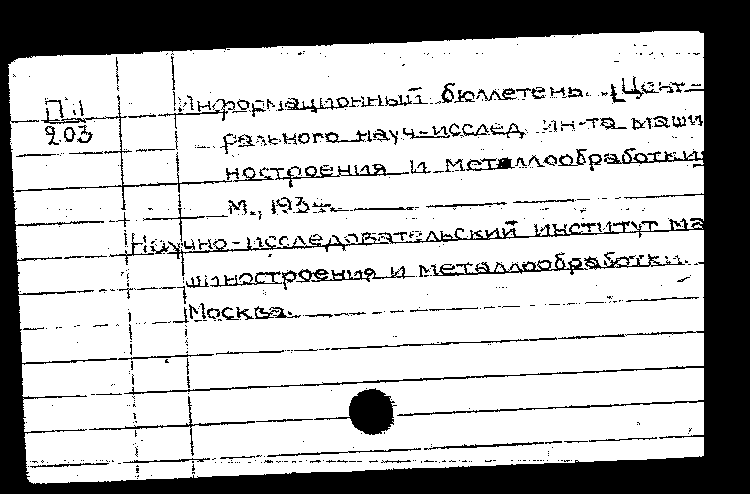 П.1
203
Информационный бюллетень. [Цент-
рального науч-исслед. ин-та маши
ностроения и металлообработки]
М., 193
Научно-исследовательский институт ма
шиностроения и металлообработки.
Москва.